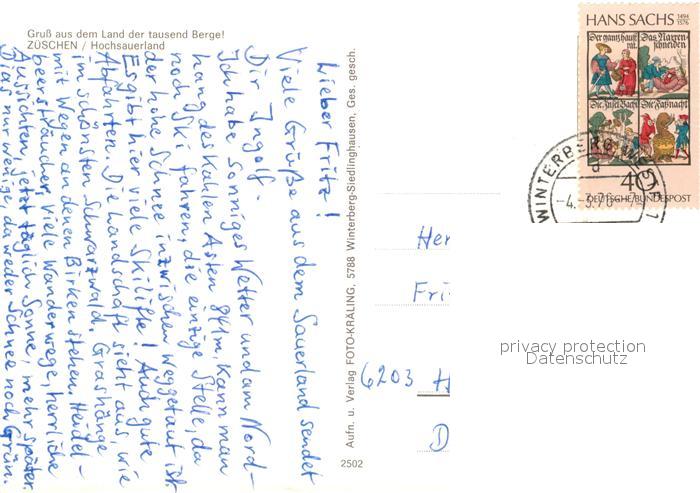 Gruß aus dem Land der tausend Berge!
ZÜSCHEN / Hochsauerland
Lieber Fritz!
Viele Grüße aus dem Sauerland sendet
Dir Ingolf.
Ich habe sonniges Wetter und am Nord-
hang des Kahlen Asten 841m, kann man
noch Ski fahren, die einzige Stelle, da
der hohe Schnee inzwischen weggetaut ist.
Es gibt hier viele Skilifte! Auch gute
Abfahrten. Die Landschaft sieht aus, wie
im schönsten Schwarzwald. Grashänge
mit Wegen an denen Birken stehen. Heidel-
beersträucher, viele Wanderwege, herrliche
Aussichten, jetzt täglich Sonne, mehr später.
Dias nur wenige, da weder Schnee noch Grün.
Aufn. u. Verlag FOTO-KRALING, 5788 Winterberg-Siedlinghausen, Ges. gesch.
2502
HANS SACHS 1494
1576
Der gantz hauß
rat.
Das Narren
schneiden
Die Insel Bachi
Die Faßnacht
40
DEUTSCHE BUNDESPOST
WINTERBERG, WESTF 1
d
-4.-3.76-7-
Her
Fri
6203 H
D
privacy protection
Datenschutz